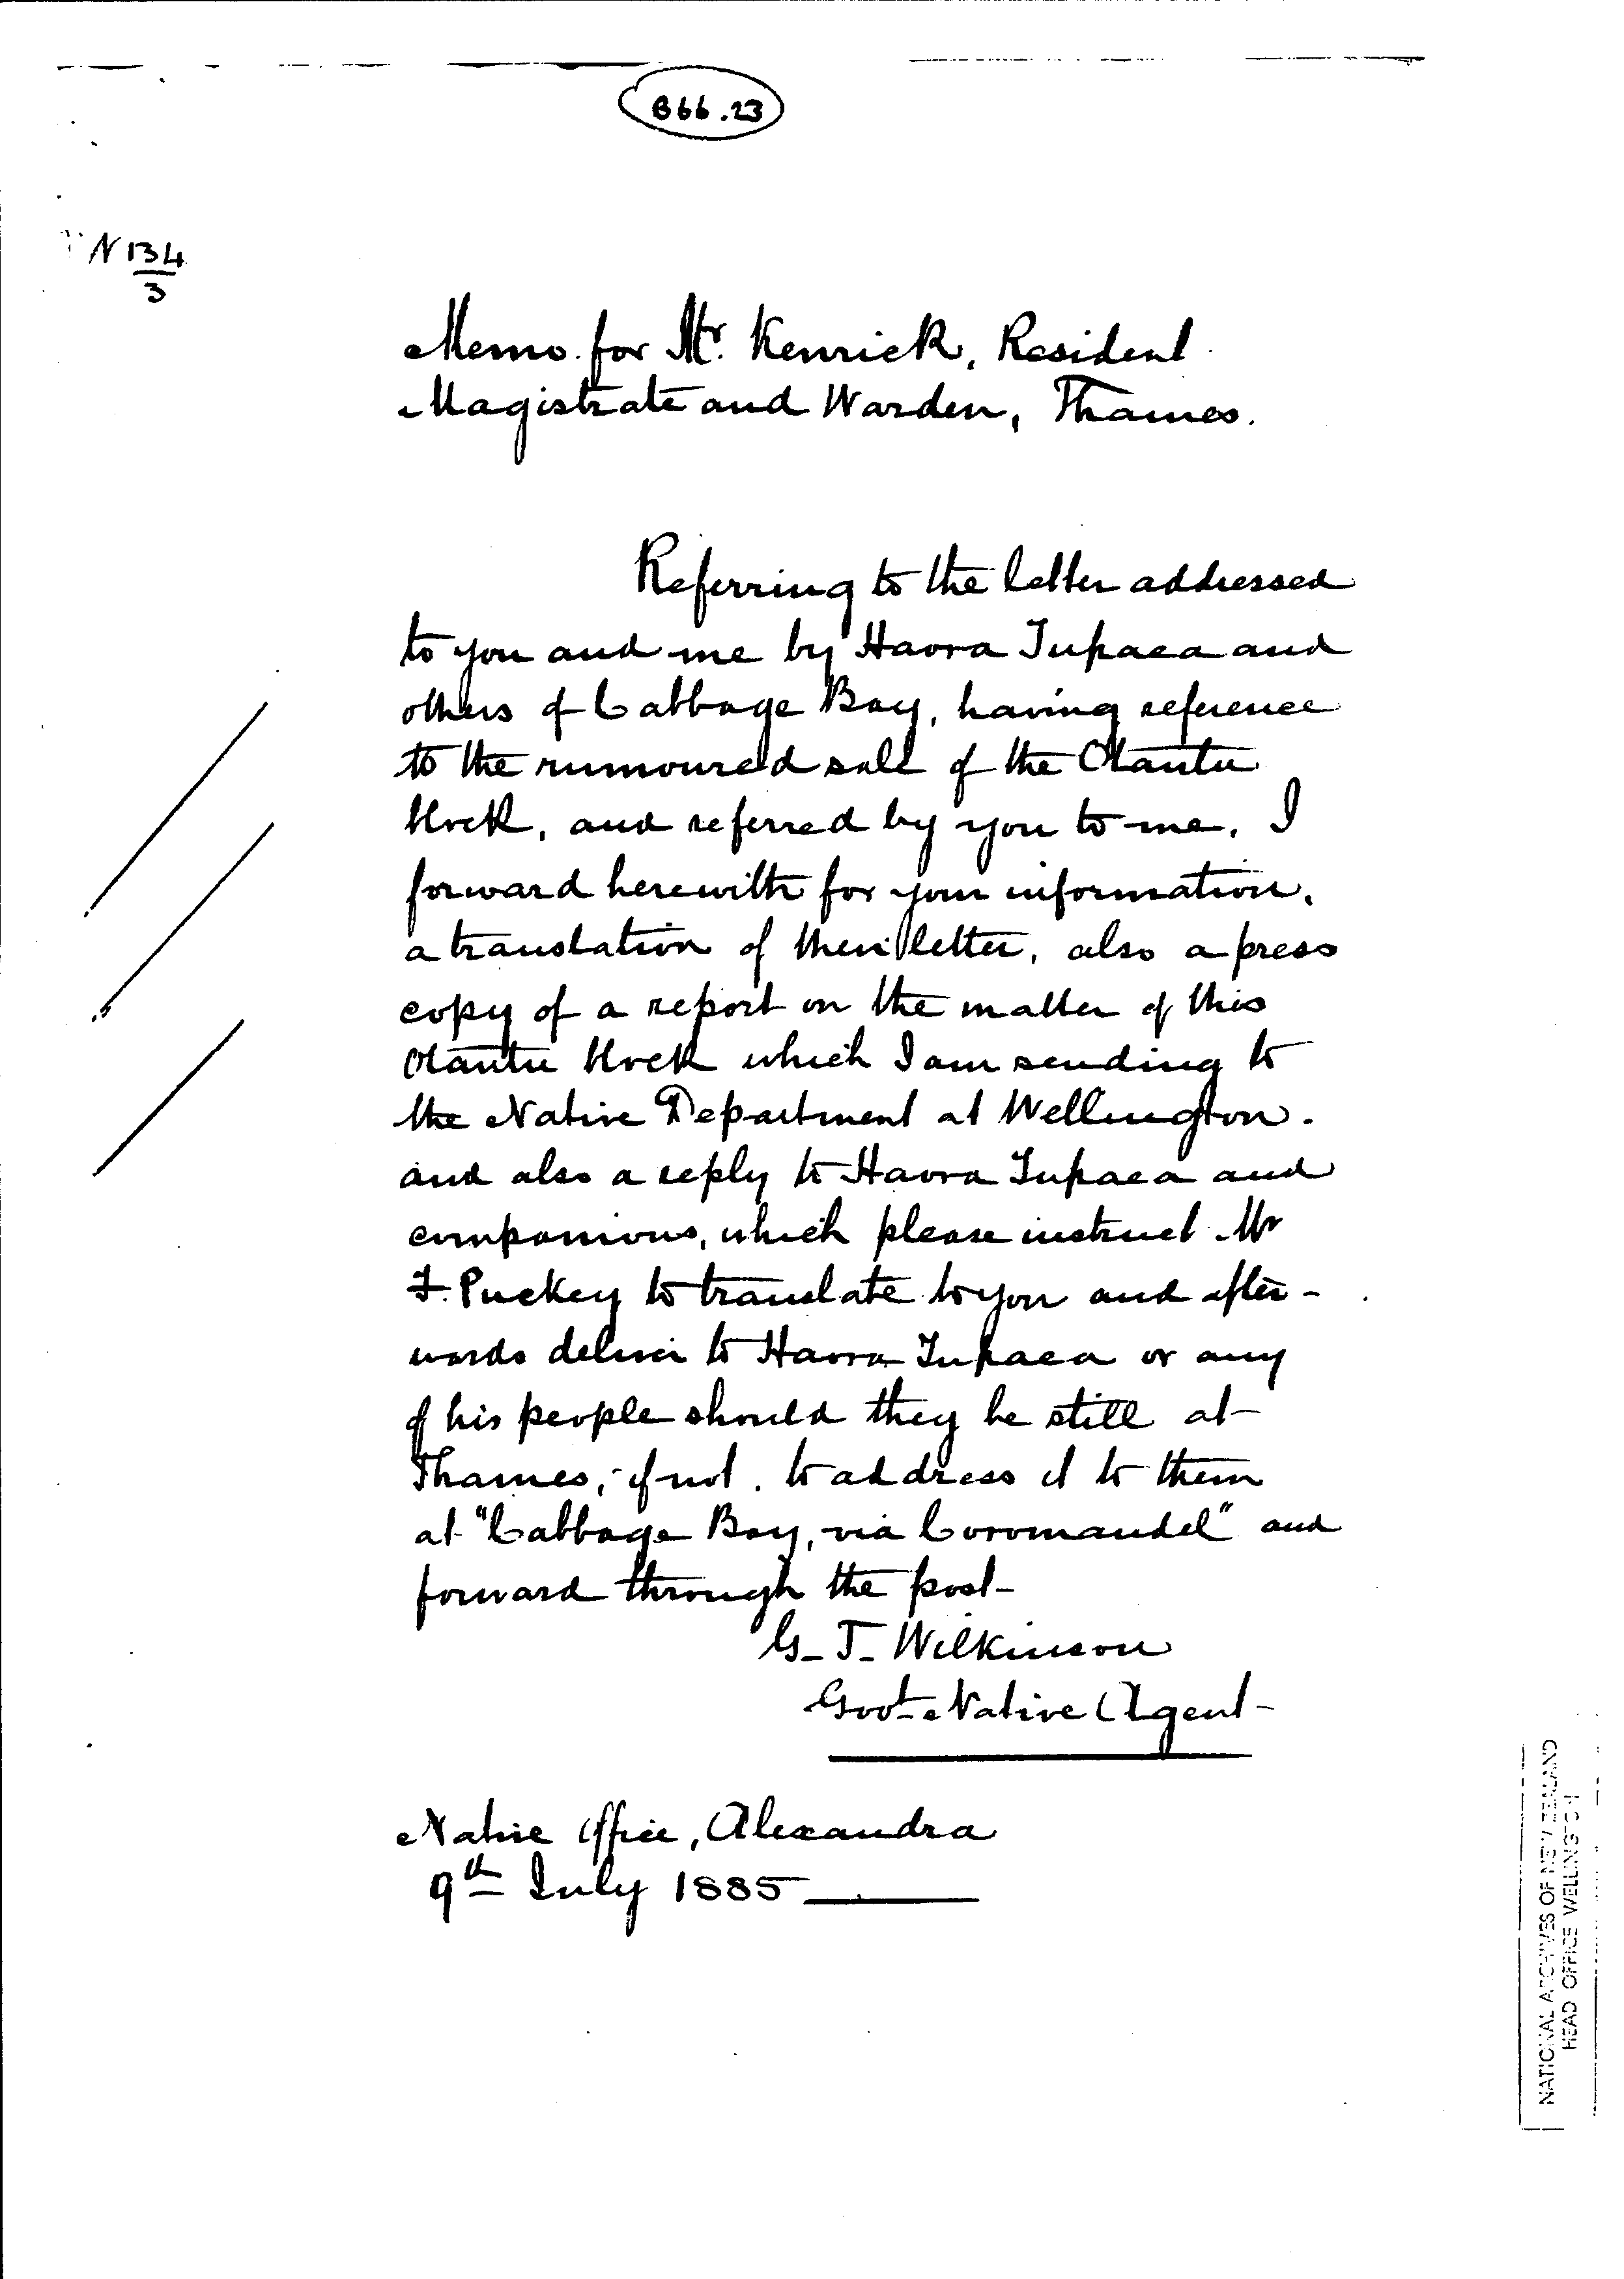 866.23
N 134
3
Memo. for Mr. Kenrick, Resident
Magistrate and Warden, Thames.
Referring to the letter addressed
to you and me by Haora Tupaea and
others of Cabbage Bay, having reference
to the rumoured sale of the Otautu
block, and referred by you to me. I
forward herewith for your information,
a translation of their letter, also a press
copy of a report on the matter of this
Otautu block which I am sending to
the Native Department at Wellington.
and also a reply to Haora Tupaea and
companions, which please instruct Mr
F. Puckey to translate to you and after-
wards deliver to Haora Tupaea or any
of his people should they be still at
Thames, if not. to address it to them
at "Cabbage Bay, via Coromandel" and
forward through the post-
G. T. Wilkinson
Govt. Native Agent-
Native Office, Alexandra
9th July 1885
NATIONAL ARCHIVES OF NEW ZEALAND
HEAD OFFICE WELLINGTON